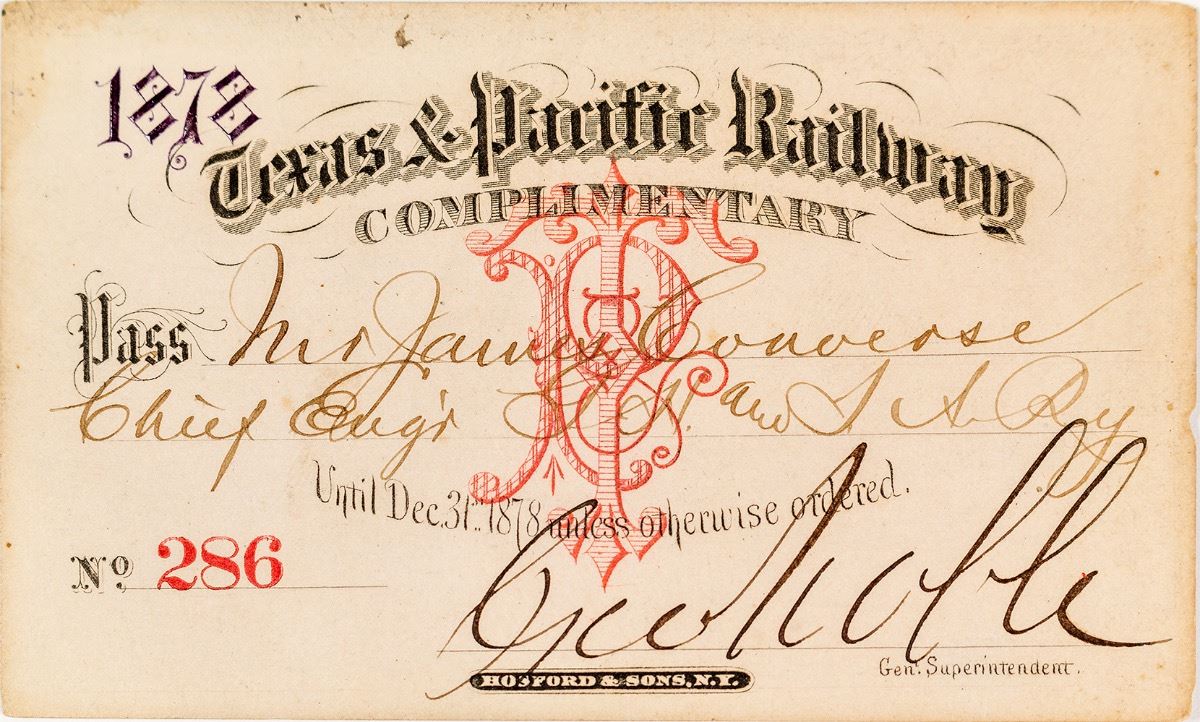 1878
Texas & Pacific Railway
COMPLIMENTARY
Pass Mr James Converse
Chief Engr G. H. and S A Ry
Until Dec. 31st 1878 unless otherwise ordered.
No 286
Geo Noble
Genl. Superintendent.
HOSFORD & SONS, N.Y.